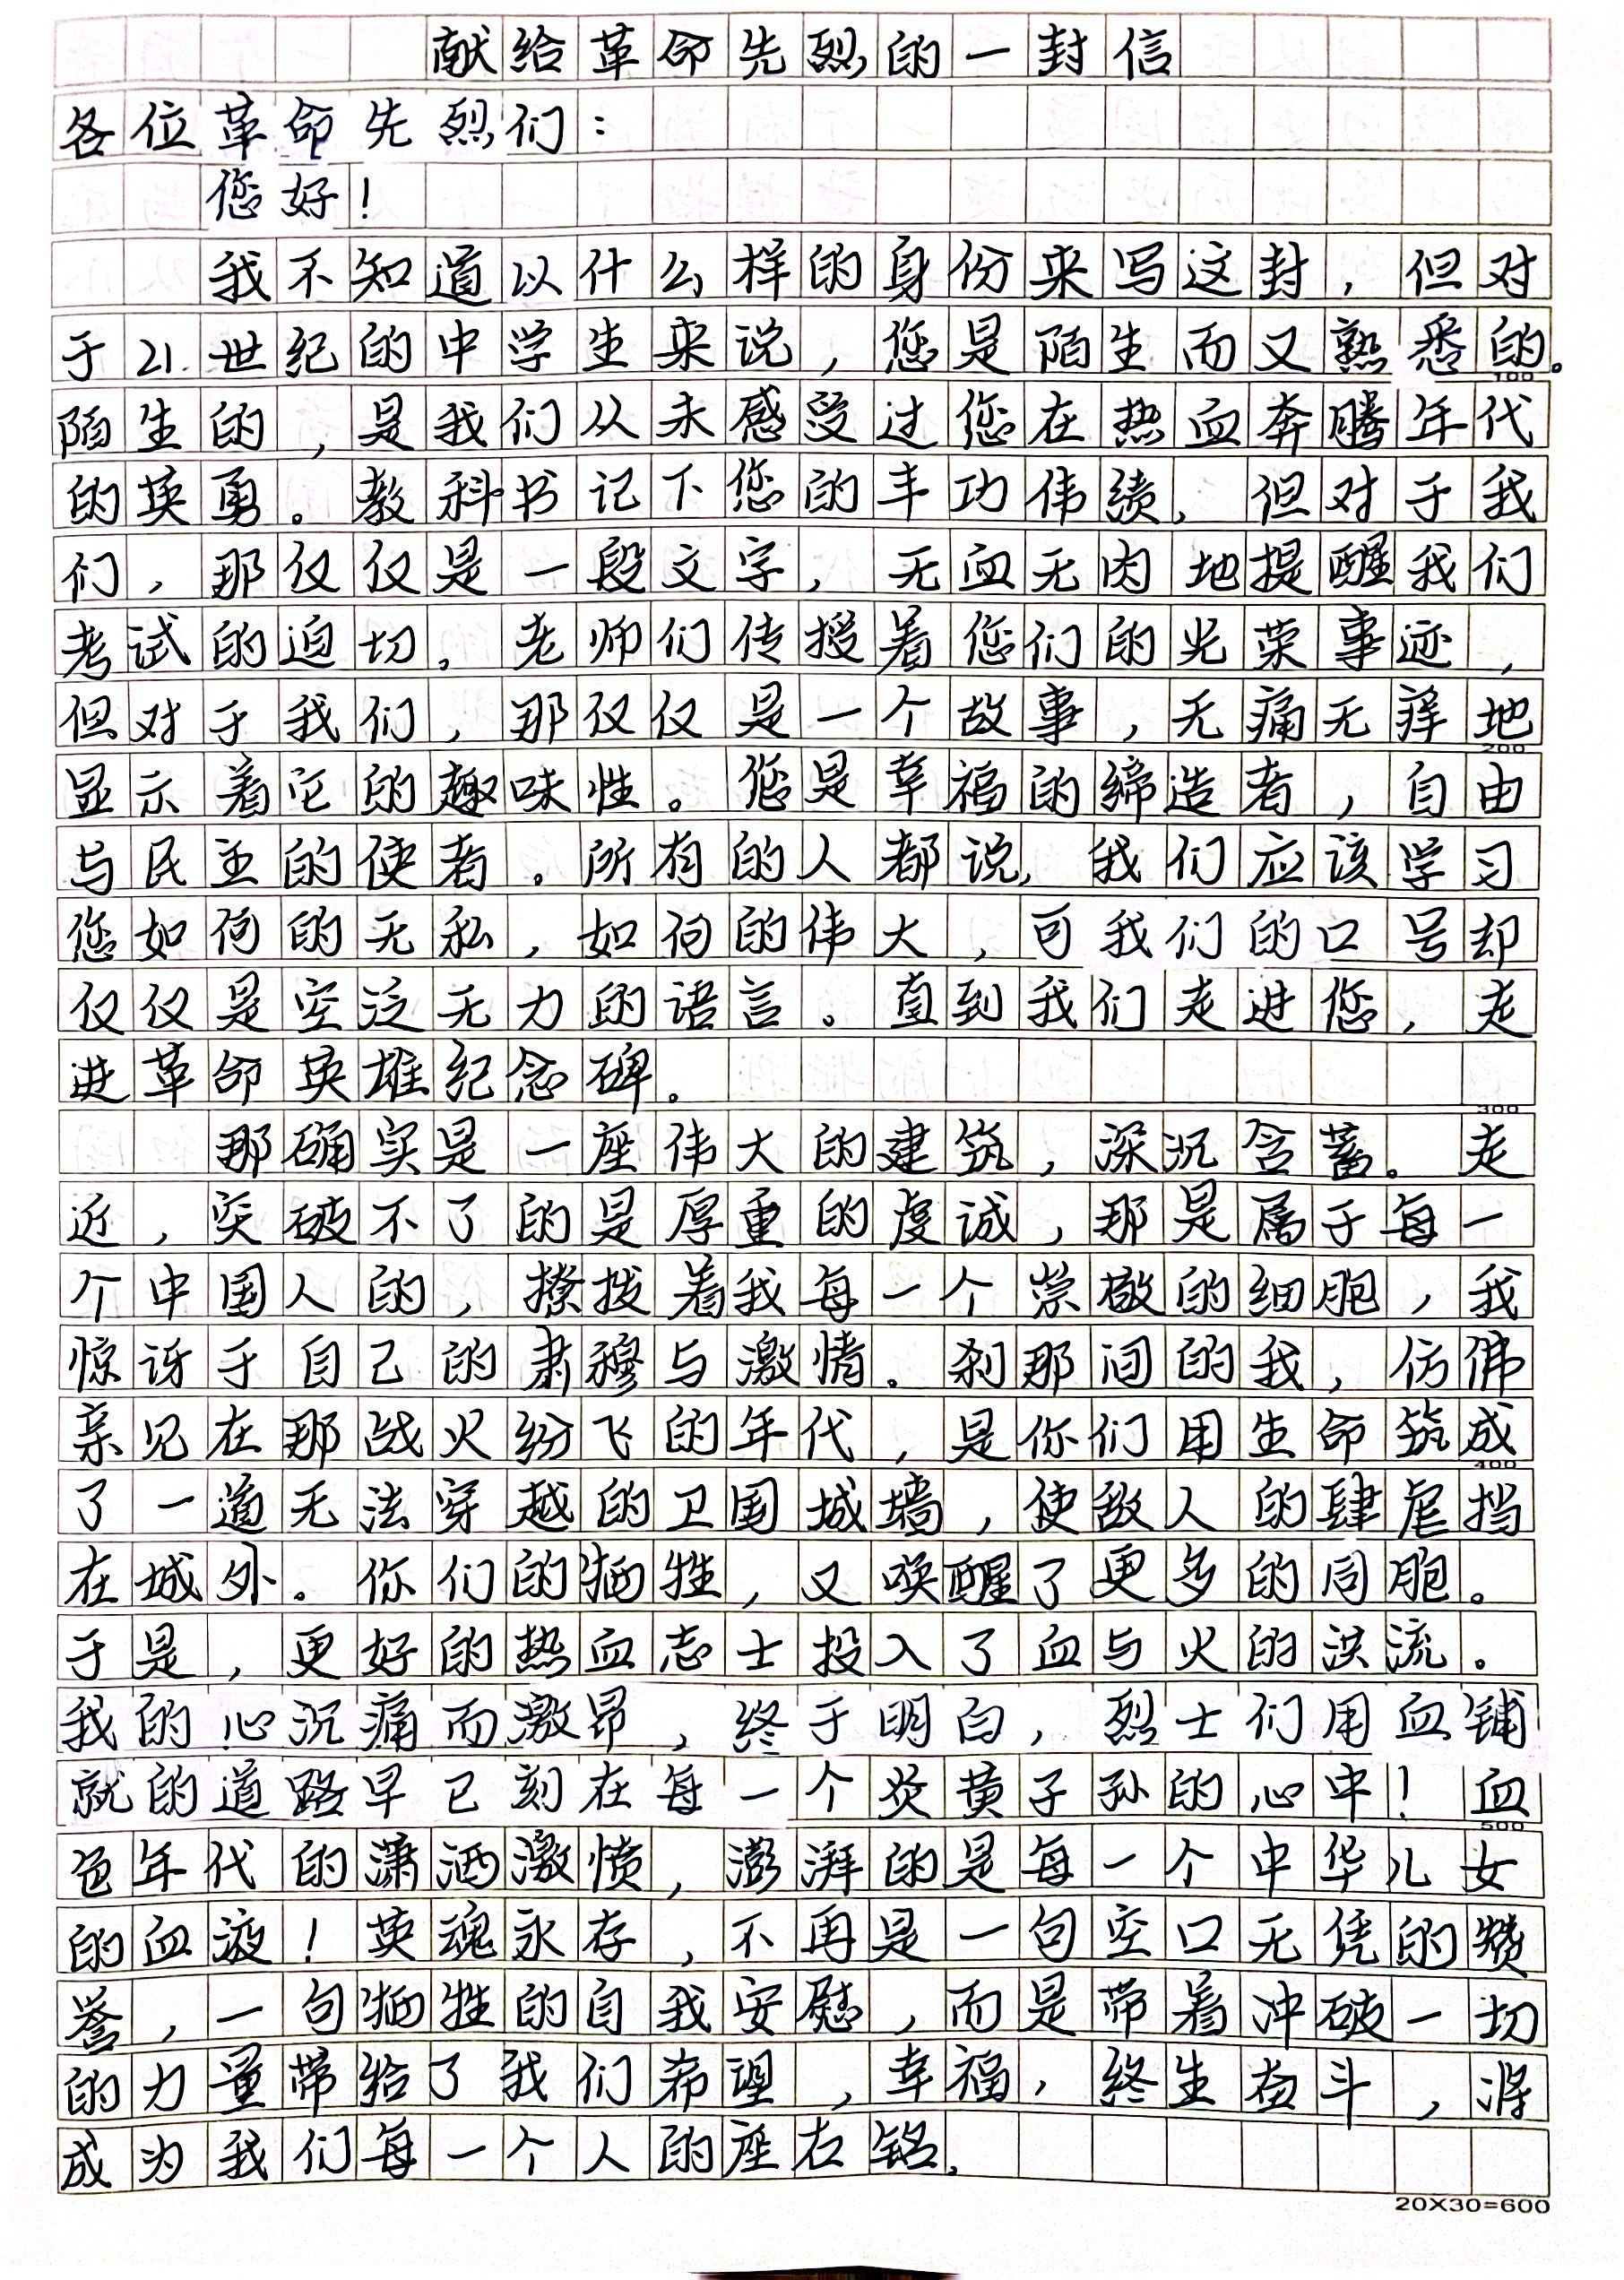 献给革命先烈的一封信
各位革命先烈们：
您好！
我不知道以什么样的身份来写这封，但对
于21世纪的中学生来说，您是陌生而又熟悉的。
100
陌生的，是我们从未感受过您在热血奔腾年代
的英勇。教科书记下您的丰功伟绩，但对于我
们，那仅仅是一段文字，无血无肉地提醒我们
考试的迫切。老师们传授着您们的光荣事迹，
但对于我们，那仅仅是一个故事，无痛无痒地
200
显示着它的趣味性。您是幸福的缔造者，自由
与民主的使者。所有的人都说，我们应该学习
您如何的无私，如何的伟大，可我们的口号却
仅仅是空泛无力的语言。直到我们走进您，走
进革命英雄纪念碑。
300
那确实是一座伟大的建筑，深沉含蓄。走
近，突破不了的是厚重的虔诚，那是属于每一
个中国人的，撩拨着我每一个崇敬的细胞，我
惊讶于自己的肃穆与激情。刹那间的我，仿佛
亲见在那战火纷飞的年代，是你们用生命筑成
400
了一道无法穿越的卫国城墙，使敌人的肆虐挡
在城外。你们的牺牲，又唤醒了更多的同胞。
于是，更好的热血志士投入了血与火的洪流。
我的心沉痛而激昂，终于明白，烈士们用血铺
就的道路早已刻在每一个炎黄子孙的心中！血
500
色年代的潇洒激愤，澎湃的是每一个中华儿女
的血液！英魂永存，不再是一句空口无凭的赞
誉，一句牺牲的自我安慰，而是带着冲破一切
的力量带给了我们希望，幸福，终生奋斗，将
成为我们每一个人的座右铭。
20X30=600